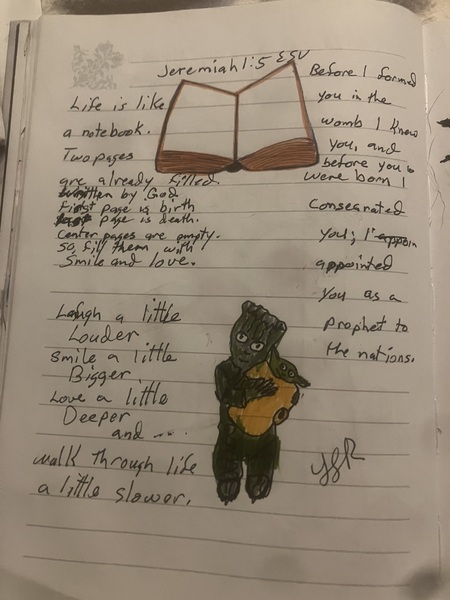 Jeremiah 1:5 ESV
Life is like
a notebook.
Two pages
are already filled
written by God.
First page is birth
last page is death.
Center pages are empty.
So, fill them with
Smile and love.
Before I formed
you in the
womb I know
you, and
before you
were born I
Consecrated
you; I appoin
appointed
you as a
Prophet to
the nations.
Laugh a little
Louder
Smile a little
Bigger
Love a little
Deeper
and ....
walk through life
a little slower.